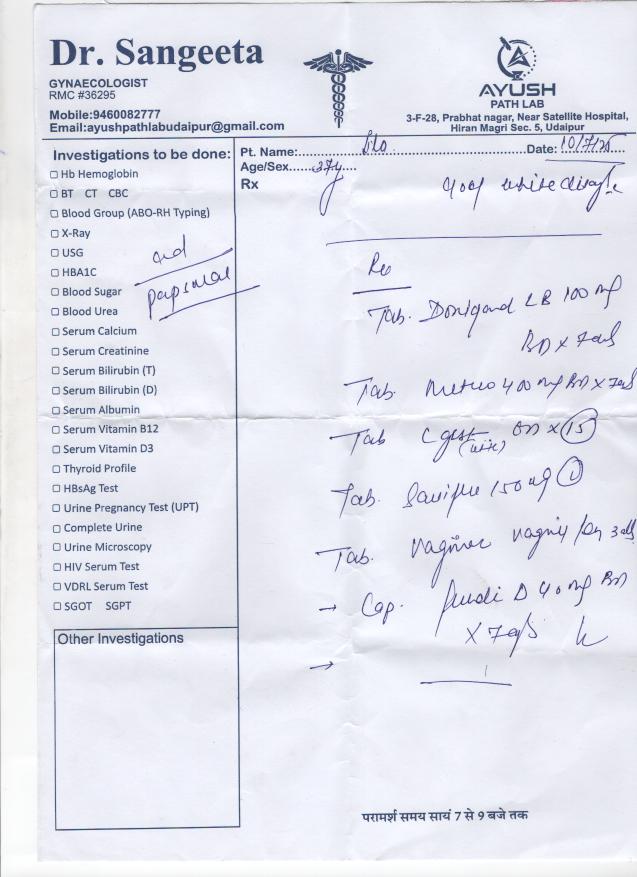 Dr. Sangeeta
GYNAECOLOGIST
RMC #36295
Mobile:9460082777
Email:ayushpathlabudaipur@gmail.com
AYUSH
PATH LAB
3-F-28, Prabhat nagar, Near Satellite Hospital,
Hiran Magri Sec. 5, Udaipur
Investigations to be done:
Hb Hemoglobin
BT CT CBC
Blood Group (ABO-RH Typing)
X-Ray
USG
HBA1C
Blood Sugar
Blood Urea
Serum Calcium
Serum Creatinine
Serum Bilirubin (T)
Serum Bilirubin (D)
Serum Albumin
Serum Vitamin B12
Serum Vitamin D3
Thyroid Profile
HBsAg Test
Urine Pregnancy Test (UPT)
Complete Urine
Urine Microscopy
HIV Serum Test
VDRL Serum Test
SGOT SGPT
papsmear
Other Investigations
Pt. Name: Date: 10/7/25
Age/Sex 37y
Rx
white
Tab. LB 100 mg
BD x 7
Tab. Metro 400 mg BD x 7
Tab x 15
Tab. 150 mg 1
Tab. 3
→ Cap. D 40 mg BD
x 7
→
परामर्श समय सायं 7 से 9 बजे तक